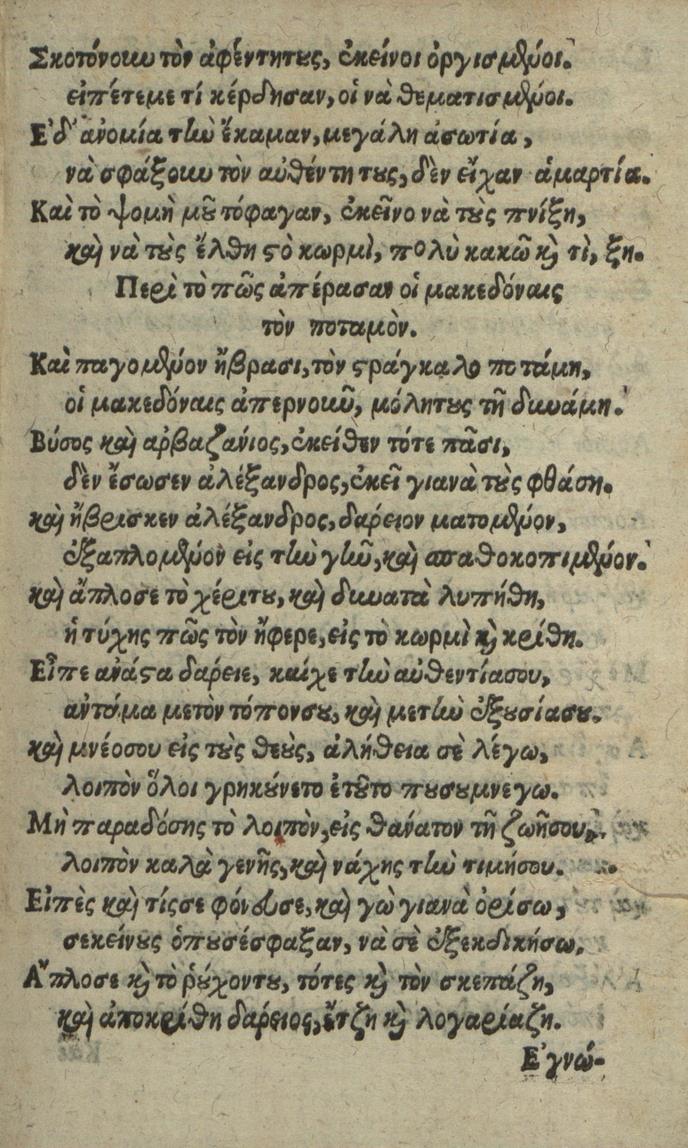 Σκοτόνουν τὸν ἀφέντητους, ἐκείνοι ὀργισμένοι.
εἰπέτεμε τί κέρδησαν, οἱ νὰ θεματισμένοι.
Ἐδ' ἀνομία τὴν ἔκαμαν, μεγάλη ἀσωτία,
νὰ σφάξουν τὸν αὐθέντη τους, δὲν εἶχαν ἁμαρτία.
Καὶ τὸ ψομὴ μοῦ τόφαγαν, ἐκεῖνο νὰ τοὺς πνίξη,
καὶ νὰ τοὺς ἔλθη στὸ κωρμὶ, πολὺ κακῶ καὶ τὶ, ξη.
Περὶ τὸ πῶς ἀπέρασαν οἱ μακεδόναις
τὸν ποταμὸν.
Καὶ παγομένον ἤβρασι, τὸν στράγκαλο ποτάμη,
οἱ μακεδόναις ἀπερνουῦ, μόλητους τῆ δυνάμη.
Βύσος καὶ ἀρβαζανίος, ἐκείθεν τότε πᾶσι,
δὲν ἔσωσεν ἀλέξανδρος, ἐκεῖ γιανὰ τοὺς φθάση.
καὶ ἤβρισκεν ἀλέξανδρος, δαρειον ματομένον,
ἐξαπλομένον εἰς τὴν γῆν, καὶ σπαθοκοπιμένον.
καὶ ἄπλοσε τὸ χέριτου, καὶ δυνατὰ λυπήθη,
ἡ τύχης πῶς τὸν ἤφερε, εἰς τὸ κωρμὶ καὶ κρίθη.
Εἶπε ανάστα δαρειε, καίχε τὴν αὐθεντίασου,
αντάμα μετὸν τόπονσου, καὶ μετὴν ἐξουσίασου.
καὶ μνέοσου εἰς τοὺς θεοὺς, ἀλήθεια σὲ λέγω,
λοιπὸν ὅλοι γρηκούνετο ἐτοῦτο πουσυμνεγω.
Μὴ παραδόσης τὸ λοιπὸν, εἰς θανάτον τῆ ζωῆσου,
λοιπὸν καλὰ γενῆς, καὶ νάχης τὴν τιμήσου.
Εἰπὲς καὶ τίςσε φόνευσε, καὶ γὼ γιανὰ ὁρίσω,
σεκείνους ὁπουσέσφαξαν, νὰ σὲ ἐξεκδικήσω.
Ἄπλοσε καὶ τὸ ῥούχοντου, τότες καὶ τὸν σκεπάζη,
καὶ ἀποκρίθη δαρειος, ἔτζη καὶ λογαριαζη.
Ἐγνώ-